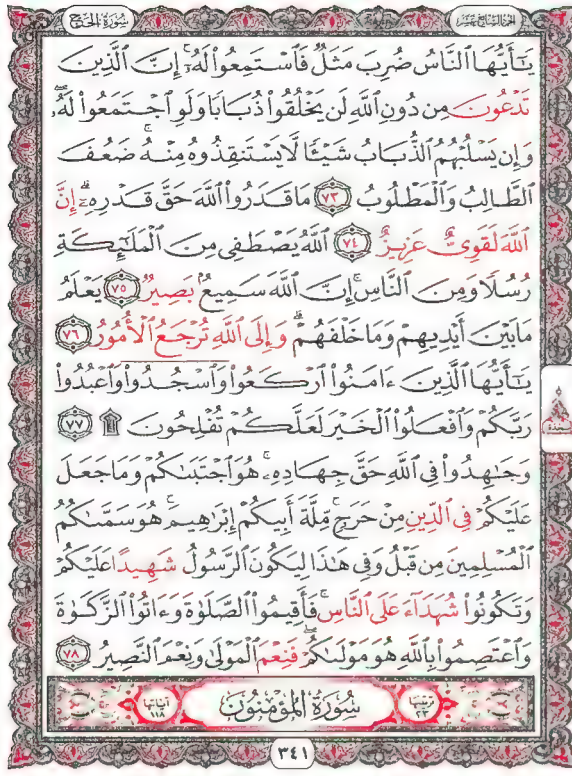 سُورَةُ الحَجّ
الجُزءُ السَّابِعَ عَشَرَ
يَٰٓأَيُّهَا ٱلنَّاسُ ضُرِبَ مَثَلٌ فَٱسْتَمِعُوا۟ لَهُۥٓ ۚ إِنَّ ٱلَّذِينَ
تَدْعُونَ مِن دُونِ ٱللَّهِ لَن يَخْلُقُوا۟ ذُبَابًا وَلَوِ ٱجْتَمَعُوا۟ لَهُۥ ۖ
وَإِن يَسْلُبْهُمُ ٱلذُّبَابُ شَيْـًٔا لَّا يَسْتَنقِذُوهُ مِنْهُ ۚ ضَعُفَ
ٱلطَّالِبُ وَٱلْمَطْلُوبُ ٧٣ مَا قَدَرُوا۟ ٱللَّهَ حَقَّ قَدْرِهِۦٓ ۗ إِنَّ
ٱللَّهَ لَقَوِىٌّ عَزِيزٌ ٧٤ ٱللَّهُ يَصْطَفِى مِنَ ٱلْمَلَٰٓئِكَةِ
رُسُلًا وَمِنَ ٱلنَّاسِ ۚ إِنَّ ٱللَّهَ سَمِيعٌۢ بَصِيرٌ ٧٥ يَعْلَمُ
مَا بَيْنَ أَيْدِيهِمْ وَمَا خَلْفَهُمْ ۗ وَإِلَى ٱللَّهِ تُرْجَعُ ٱلْأُمُورُ ٧٦
يَٰٓأَيُّهَا ٱلَّذِينَ ءَامَنُوا۟ ٱرْكَعُوا۟ وَٱسْجُدُوا۟ وَٱعْبُدُوا۟
رَبَّكُمْ وَٱفْعَلُوا۟ ٱلْخَيْرَ لَعَلَّكُمْ تُفْلِحُونَ ۩ ٧٧
وَجَٰهِدُوا۟ فِى ٱللَّهِ حَقَّ جِهَادِهِۦ ۚ هُوَ ٱجْتَبَىٰكُمْ وَمَا جَعَلَ
عَلَيْكُمْ فِى ٱلدِّينِ مِنْ حَرَجٍ ۚ مِّلَّةَ أَبِيكُمْ إِبْرَٰهِيمَ ۚ هُوَ سَمَّىٰكُمُ
ٱلْمُسْلِمِينَ مِن قَبْلُ وَفِى هَٰذَا لِيَكُونَ ٱلرَّسُولُ شَهِيدًا عَلَيْكُمْ
وَتَكُونُوا۟ شُهَدَآءَ عَلَى ٱلنَّاسِ ۚ فَأَقِيمُوا۟ ٱلصَّلَوٰةَ وَءَاتُوا۟ ٱلزَّكَوٰةَ
وَٱعْتَصِمُوا۟ بِٱللَّهِ هُوَ مَوْلَىٰكُمْ ۖ فَنِعْمَ ٱلْمَوْلَىٰ وَنِعْمَ ٱلنَّصِيرُ ٧٨
ترتيبها ٢٣ سُورَةُ المُؤْمِنُونَ آياتها ١١٨
سجدة
٣٤١